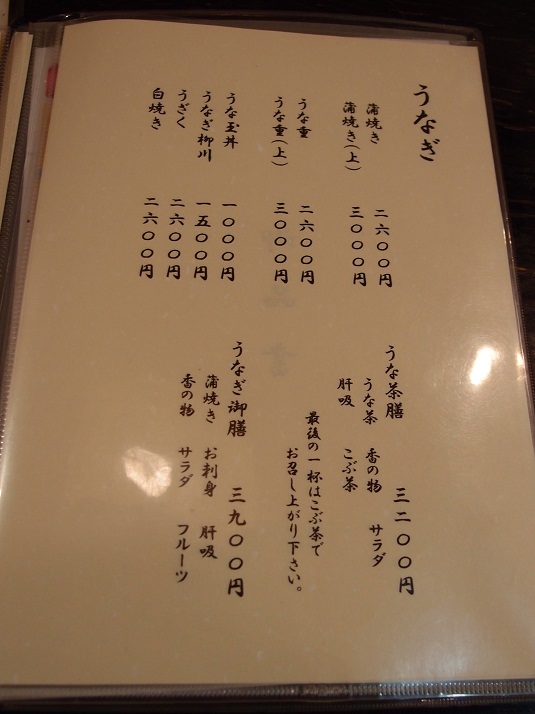 うなぎ
蒲焼き 二六〇〇円
蒲焼き(上) 三〇〇〇円
うな重 二六〇〇円
うな重(上) 三〇〇〇円
うな玉丼 一〇〇〇円
うなぎ柳川 一五〇〇円
うざく 二六〇〇円
白焼き 二六〇〇円
うな茶膳 三二〇〇円
うな茶 香の物 サラダ
肝吸 こぶ茶
最後の一杯はこぶ茶で
お召し上がり下さい。
うなぎ御膳 三九〇〇円
蒲焼き お刺身 肝吸
香の物 サラダ フルーツ